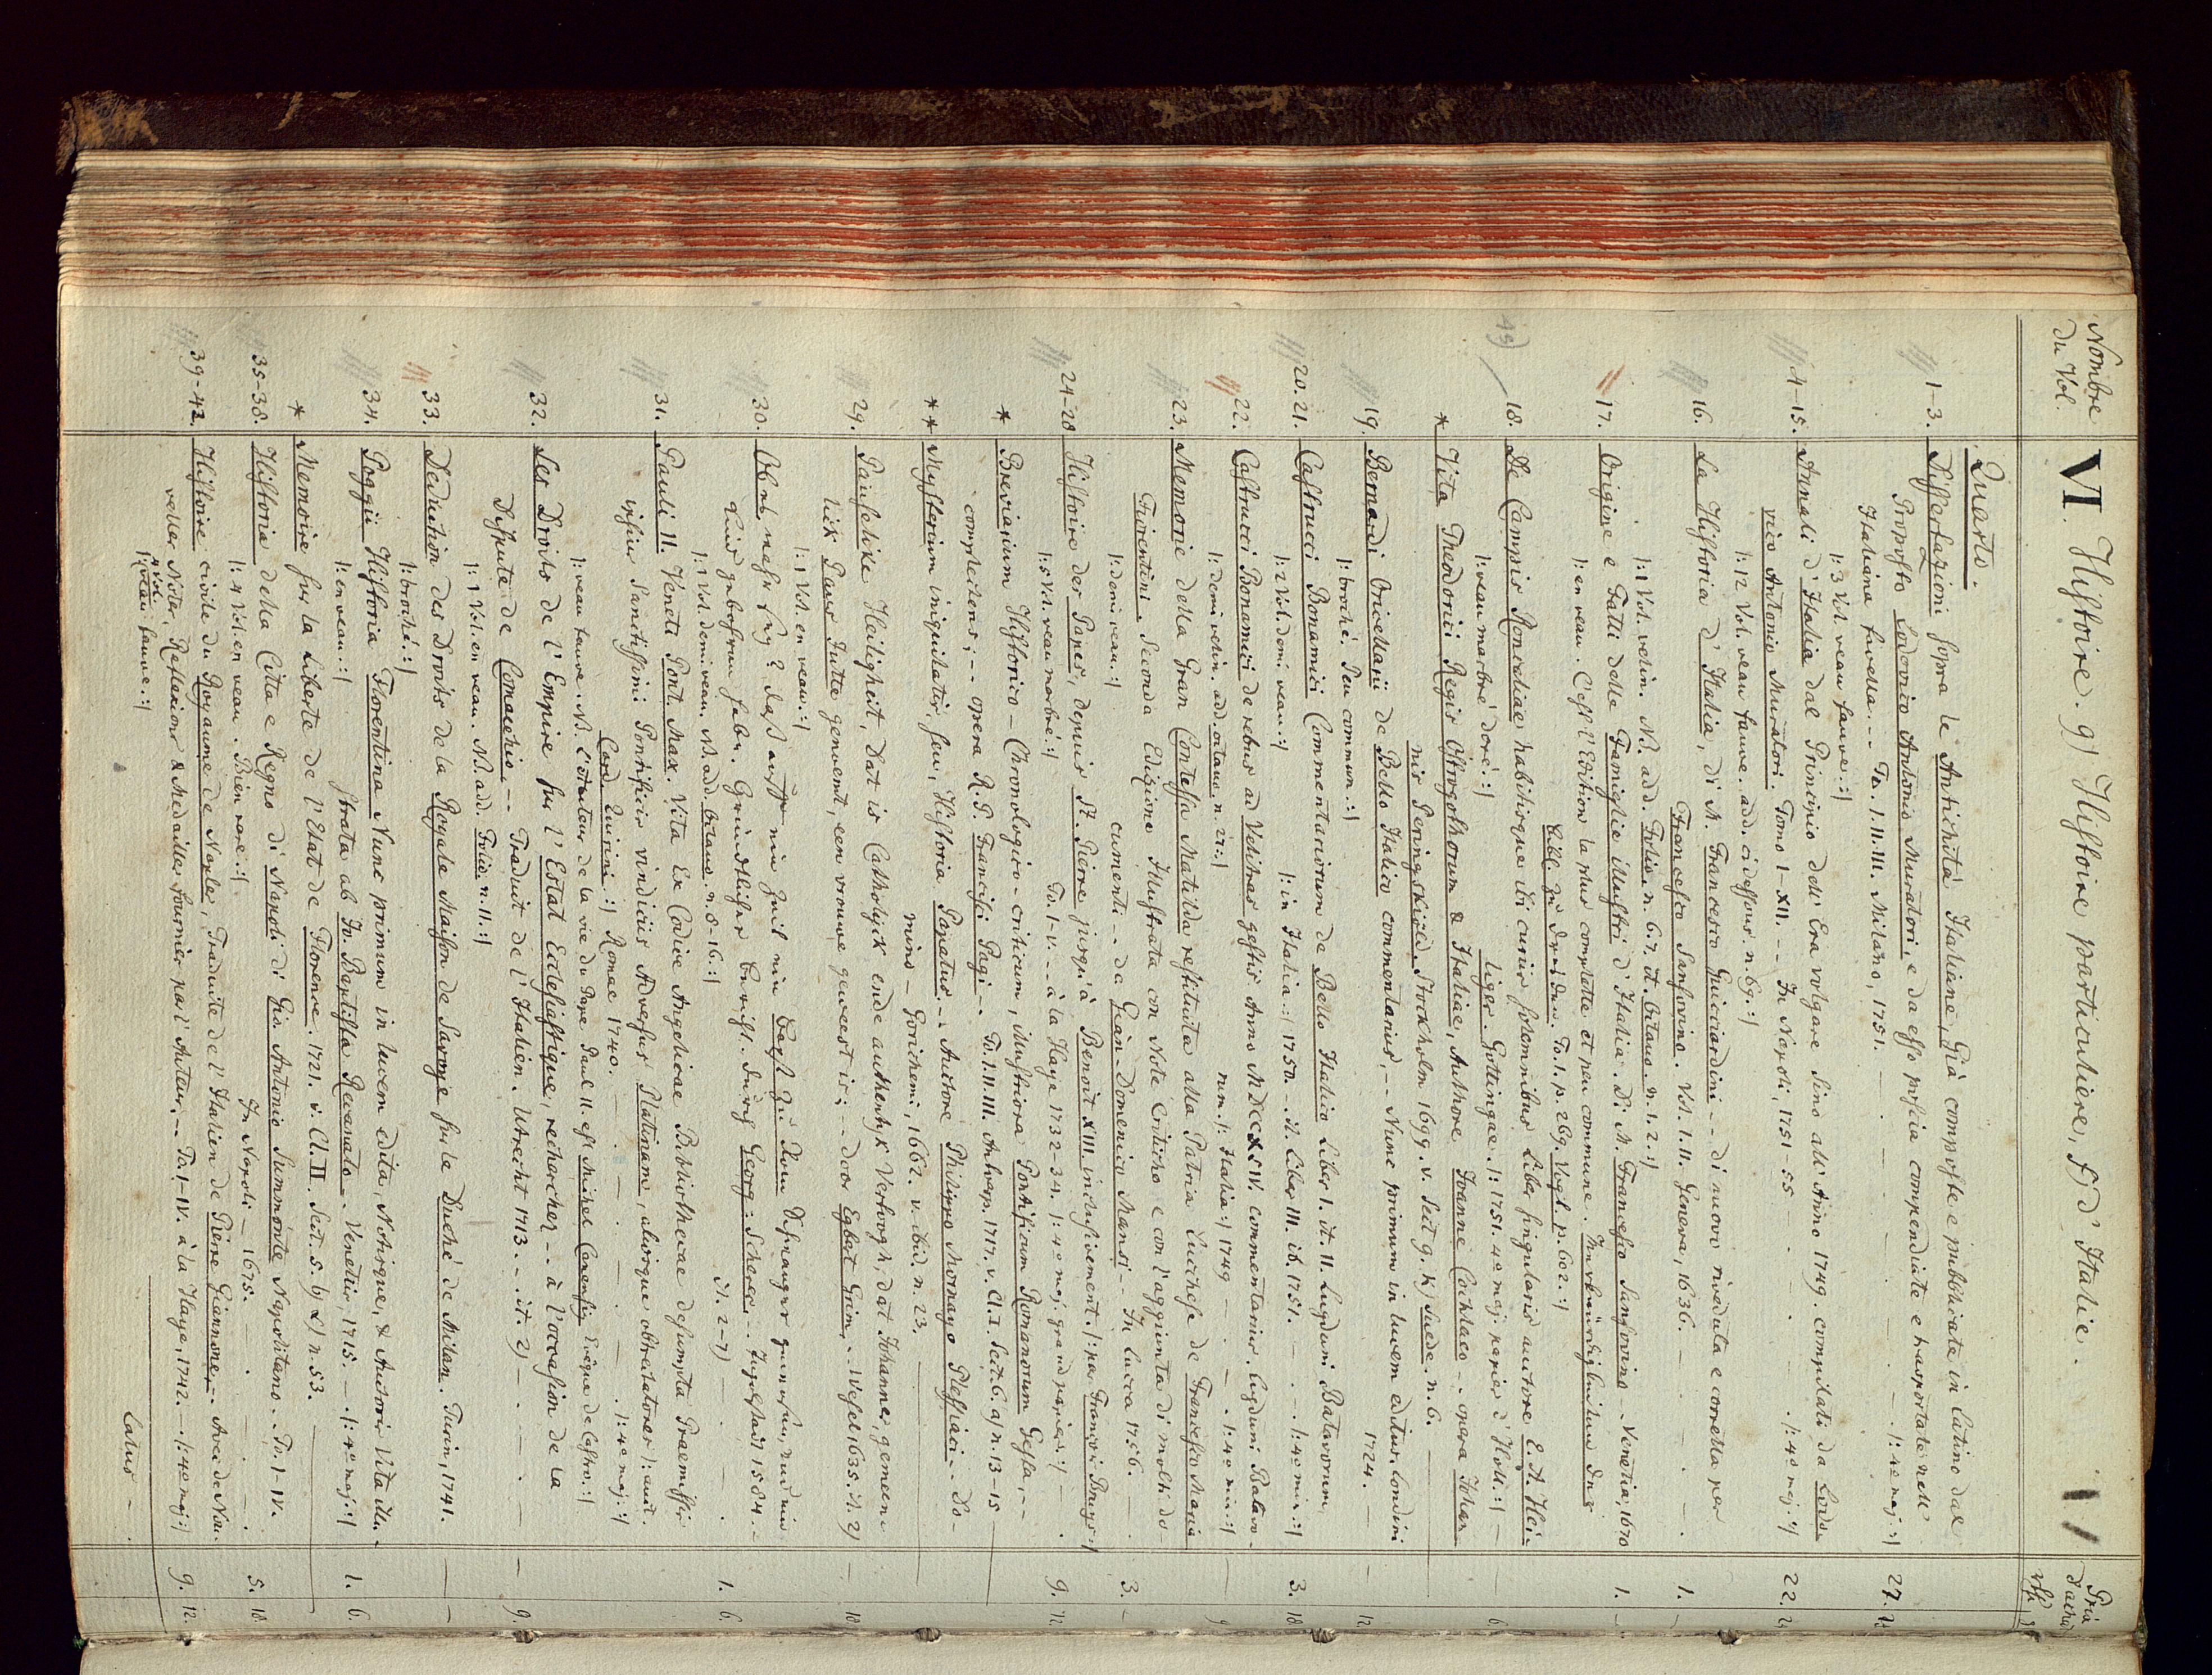 Nombre
du Vol.
VI. Histoire. g) Histoire particuliere, f) d'Italie.
Prix
d'achat
Quarto.
1-3. Dissertazioni sopra le Antichità Italiane, Già composte e pubblicate in Latino dal
Proposto Lodovico Antonio Muratori, e da esso poscia compendiate e trasportate nell'
Italiana favella. -- To. I. II. III. Milano, 1751. — . — . — /: 4o maj :/ 27.
/: 3 Vol. veau fauve :/
4-15. Annali d'Italia dal Principio dell' Era volgare Sino all' Anno 1749. compilati da Lodo-
vico Antonio Muratori. Tomo I-XII. -- In Napoli, 1751-55 — . — . /: 4o maj :/ 22.
/: 12 Vol. veau fauve. add. ci dessus. n. 69. :/
16. La Historia d'Italia, di M. Francesco Guicciardini -- di nuovo riveduta e corretta per
Francesco Sansovino. Vol. I. II. Geneva, 1636. — . — . 1. —
/: 1 Vol. velin. N. add. Folio. n. 6. 7. it. Octavo. n. 1. 2. :/
17. Origine e Fatti delle Famiglie illustri d'Italia. Di M. Francesco Sansovino -- Venetia, 1670 1. —
/: en veau. C'est l'Edition la plus complette et peu commune.
Bibl. zu Dresden. To. I. p. 269. Vogt. p. 602. :/
18. De Campis Roncaliae habitisque ibi curiis solemnibus Liber singularis auctore E. A. Hei-
liger. Gottingae. /: 1751. 4o maj. papier d'Holl. :/ — 6.
/: veau marbré doré :/
* Vita Theodorici Regis Ostrogothorum & Italiae, Authore Joanne Cochlaeo -- opera Johan-
nis Peringskiöld. Stockholm 1699. v. Sect. g. k) Suede. n. 6.
19. Bernardi Oricellarii de Bello Italico commentarius, -- Nunc primum in lucem editus. Londini
1724. — 12
/: broché. Peu commun :/
20. 21. Castrucci Bonamici Commentariorum de Bello Italico Liber I. it. II. Lugduni Batavorum,
/: in Italia :/ 1750. -- it. Liber III. ib. 1751. — . — . /: 4o min :/ 3. 18
/: 2 Vol. demi veau :/
22. Castrucci Bonamici de rebus ad Velitras gestis Anno MDCCXLIV. commentarius. Lugduni Batavo-
rum. /: Italia :/ 1749 — . — . /: 4o min :/ — 9
/: demi velin. add. octavo. n. 22. :/
23. Memorie della Gran Contessa Matilda restituita alla Patria Lucchese da Francesco Maria
Fiorentini. Seconda Edizione Illustrata con Note Critiche e con l'aggiunta di molti do-
cumenti -- da Gian Domenico Mansi -- In Lucca 1756. — 3. —
/: demi veau. :/
24-28 Histoire des Papes, depuis St. Pierre jusqu'à Benoit XIII. inclusivement. /: par François Bruys :/
To. I-V. -- à la Haye 1732-34. /: 4o maj. grand papier :/ — . 9. 12.
/: 5 Vol. veau marbré :/
* Breviarium Historico-Chronologico-criticum, illustriora Pontificum Romanorum Gesta, --
complectens; -- opera R. P. Francisci Pagi -- To. I. II. III. Antverp. 1717. v. Cl. I. Sect. 6. a) n. 13-15
** Mysterium iniquitatis, seu, Historia Papatus. -- Auctore Philippo Mornayo Plessiaci -- Do-
mino - Gorichemi, 1662. v. ibid. n. 23.
29. Pauselicke Heiligheit, Dat is Catholijck ende authentyk Vertoogh, dat Johannes, gemeen-
lick Paus Jutte genoemt, een vrouwe geweest is; -- door Egbert Grim. -- Wesel 1635. it. 2) — 18
/: 1 Vol. en veau. :/
30. Obes mehr sey? Daß auff ein Zeit ein Papst zu Rom schwanger gewesen, und ein
Kind gebohren habe. Gründtlicher Bericht. Durch Georg: Scherer. -- Ingolstadt 1584. --
it. 2-7) — . 1. 6.
/: 1 Vol. demi veau. N. add. Octavo. n. 8-16. :/
31. Pauli II. Veneti Pont. Max. Vita Ex Codice Angelicae Bibliothecae desumpta Praemissis
ipsius Sanctissimi Pontificis vindiciis Adversus Platinam, aliosque obtrectatores /: auct.
Card. Quirini :/ Romae 1740. — . — . /: 4o maj :/
/: veau fauve. N. L'Auteur de la vie du Pape Paul II. est Michel Canensis Evêque de Castro. :/
32. Les Droits de l'Empire sur l'Estat Ecclesiastique, recherchez -- à l'occasion de la
Dispute de Comacchio. -- Traduit de l'Italien. Utrecht 1713. -- it. 2) — . — . — 9.
/: 1 Vol. en veau. N. add. Folio. n. 11. :/
33. Deduction des Droits de la Royale Maison de Savoye sur le Duché de Milan. Turin, 1741. — —
/: broché. :/
34. Poggii Historia Florentina Nunc primum in lucem edita, Notisque, & Auctoris Vita illu-
strata ab Jo. Baptista Recanato -- Venetiis, 1715. — /: 4o maj :/ 1. 6
/: en veau. :/
* Memoire sur la Liberte de l'Etat de Florence. 1721. v. Cl. II. Sect. 5. b) L) n. 53.
35-38. Historia della Citta e Regno di Napoli di Gio. Antonio Summonte Napolitano -- To. I-IV.
In Napoli - 1675. — . — . 5. 18
/: 4 Vol. en veau. Bien rare :/
39-42. Histoire civile du Royaume de Naples, Traduite de l'Italien de Pierre Giannone, -- Avec de Nou-
velles Notes, Reflexions & Medailles fournies par l'Auteur, -- To. I-IV. à la Haye, 1742. — /: 4o maj :/ 9. 12.
/: 4 Vol. veau fauve :/
Latus — .